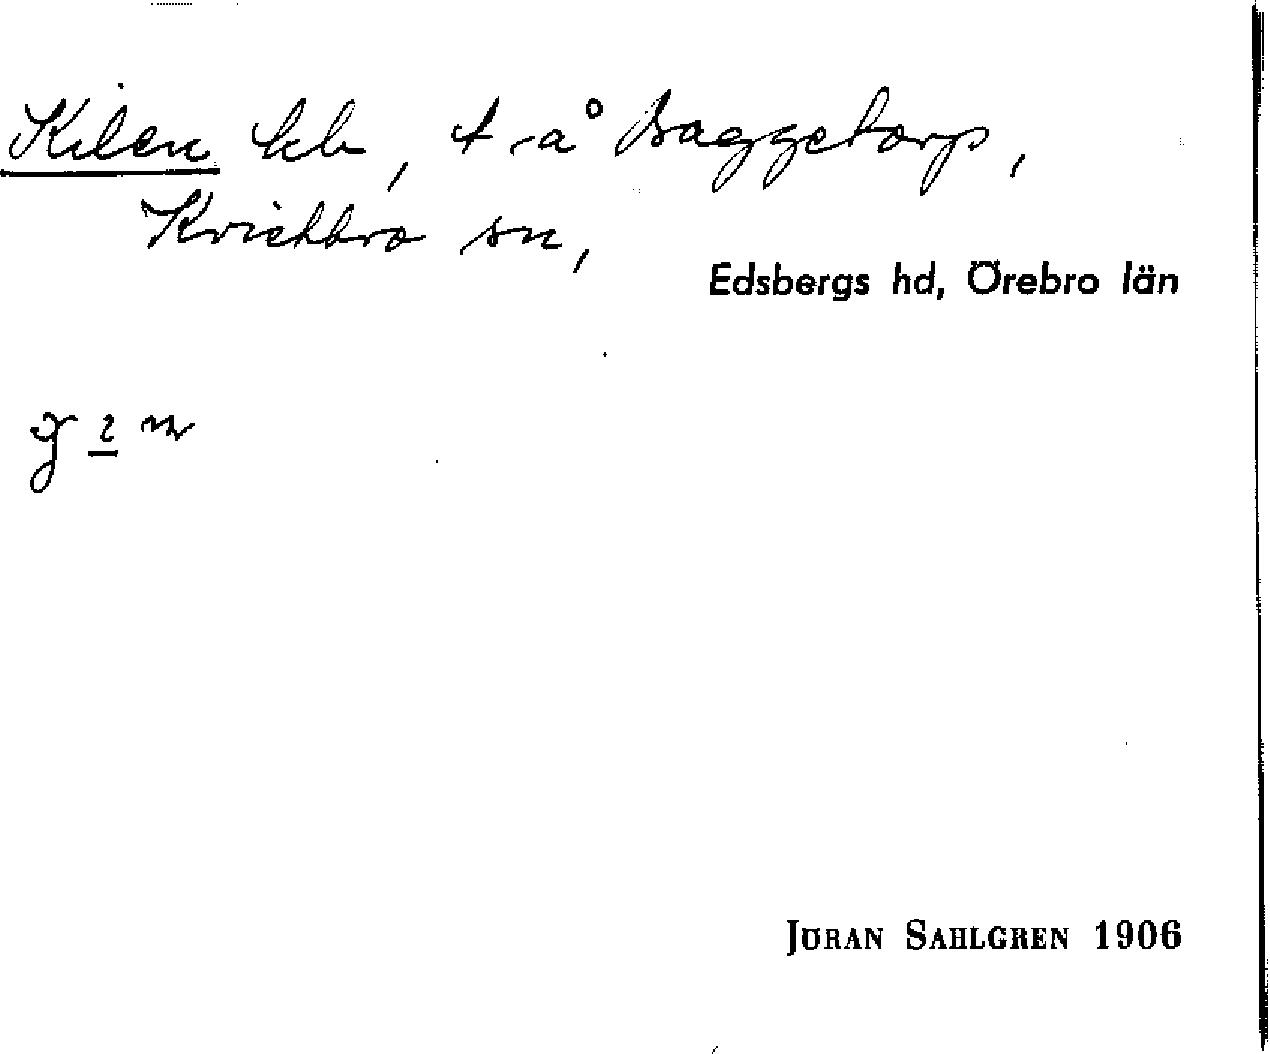 Kilen hl, t. å Baggetorp,
Kvistbro sn,
Edsbergs hd, Örebro län
JÖRAN SAHLGREN 1906